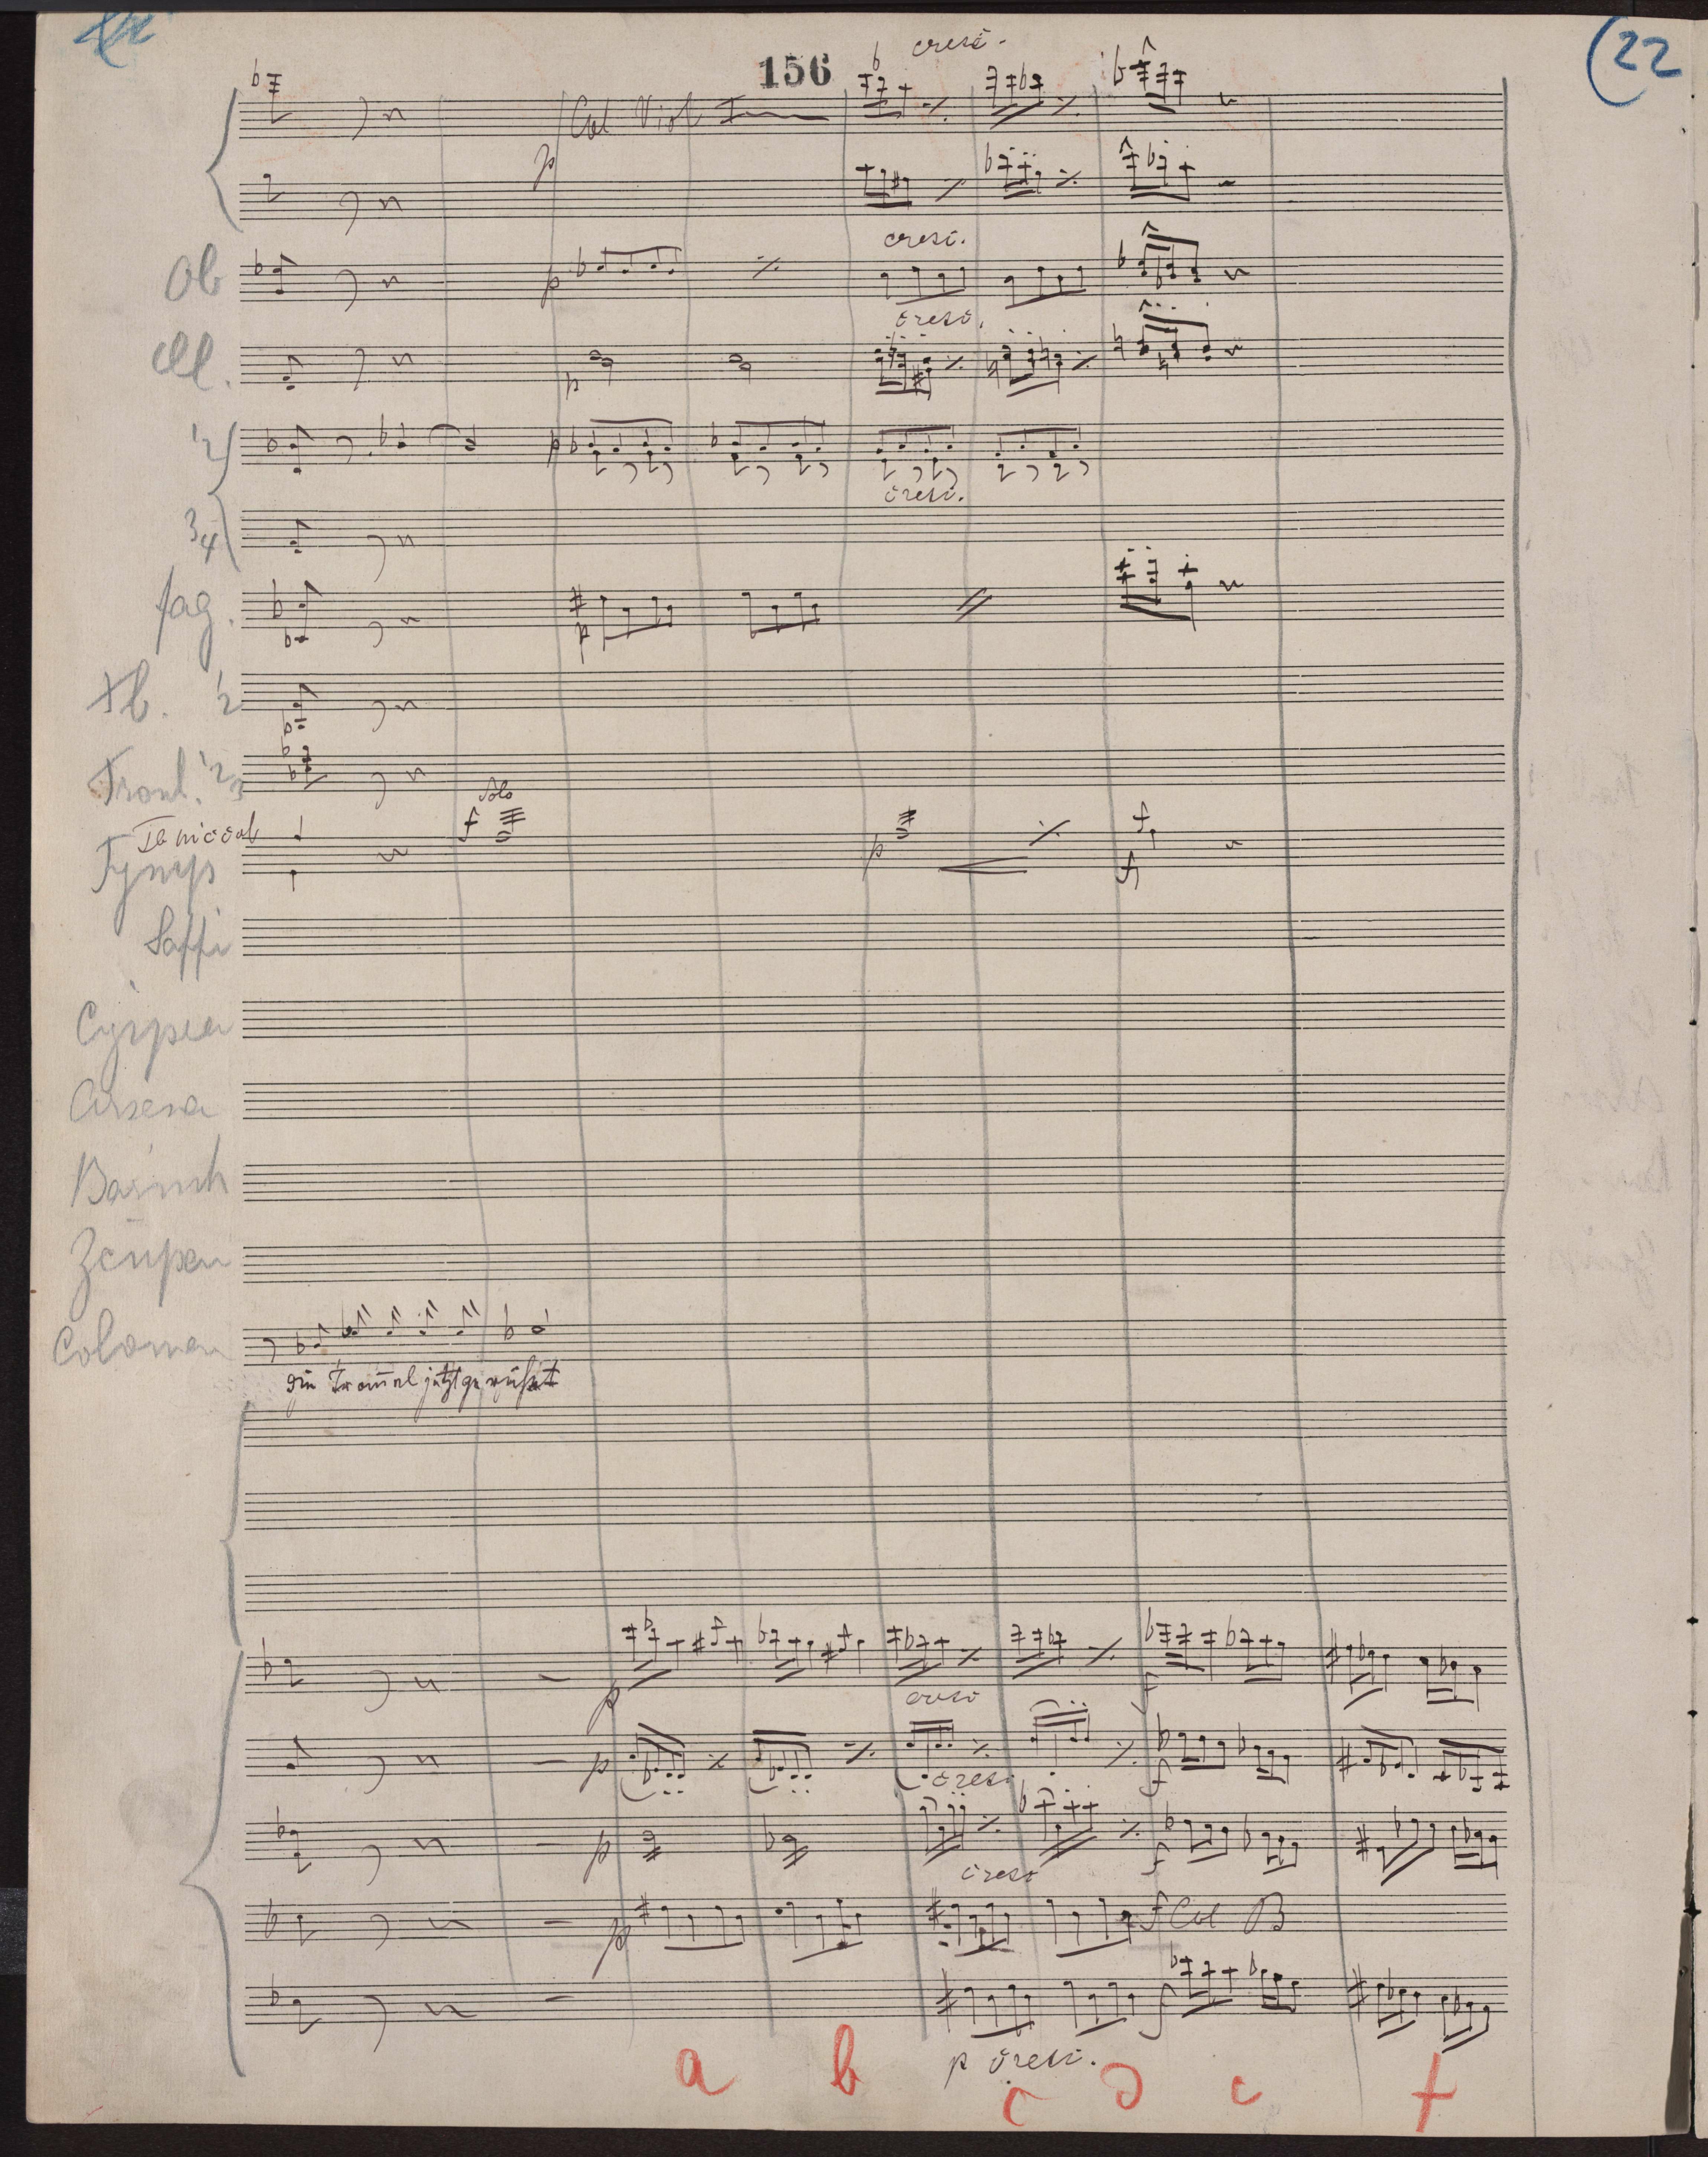 22
156
cresc.
Col Viol I
p
cresc.
Ob
p
cresc.
Cl.
p
1/2
p
cresc.
3/4
fag.
p
Tb. 1/2
Tromb. 1 2 3
Solo
f
p
f
f
Tymp
Saffi
Czipra
Arsena
Barinkay
Zsupan
Coloman
die Trommel jetzt gerührt
p
cresc
f
p
cresc
f
p
cresc
f
p
f Col B
f
p cresc.
a b c d e f